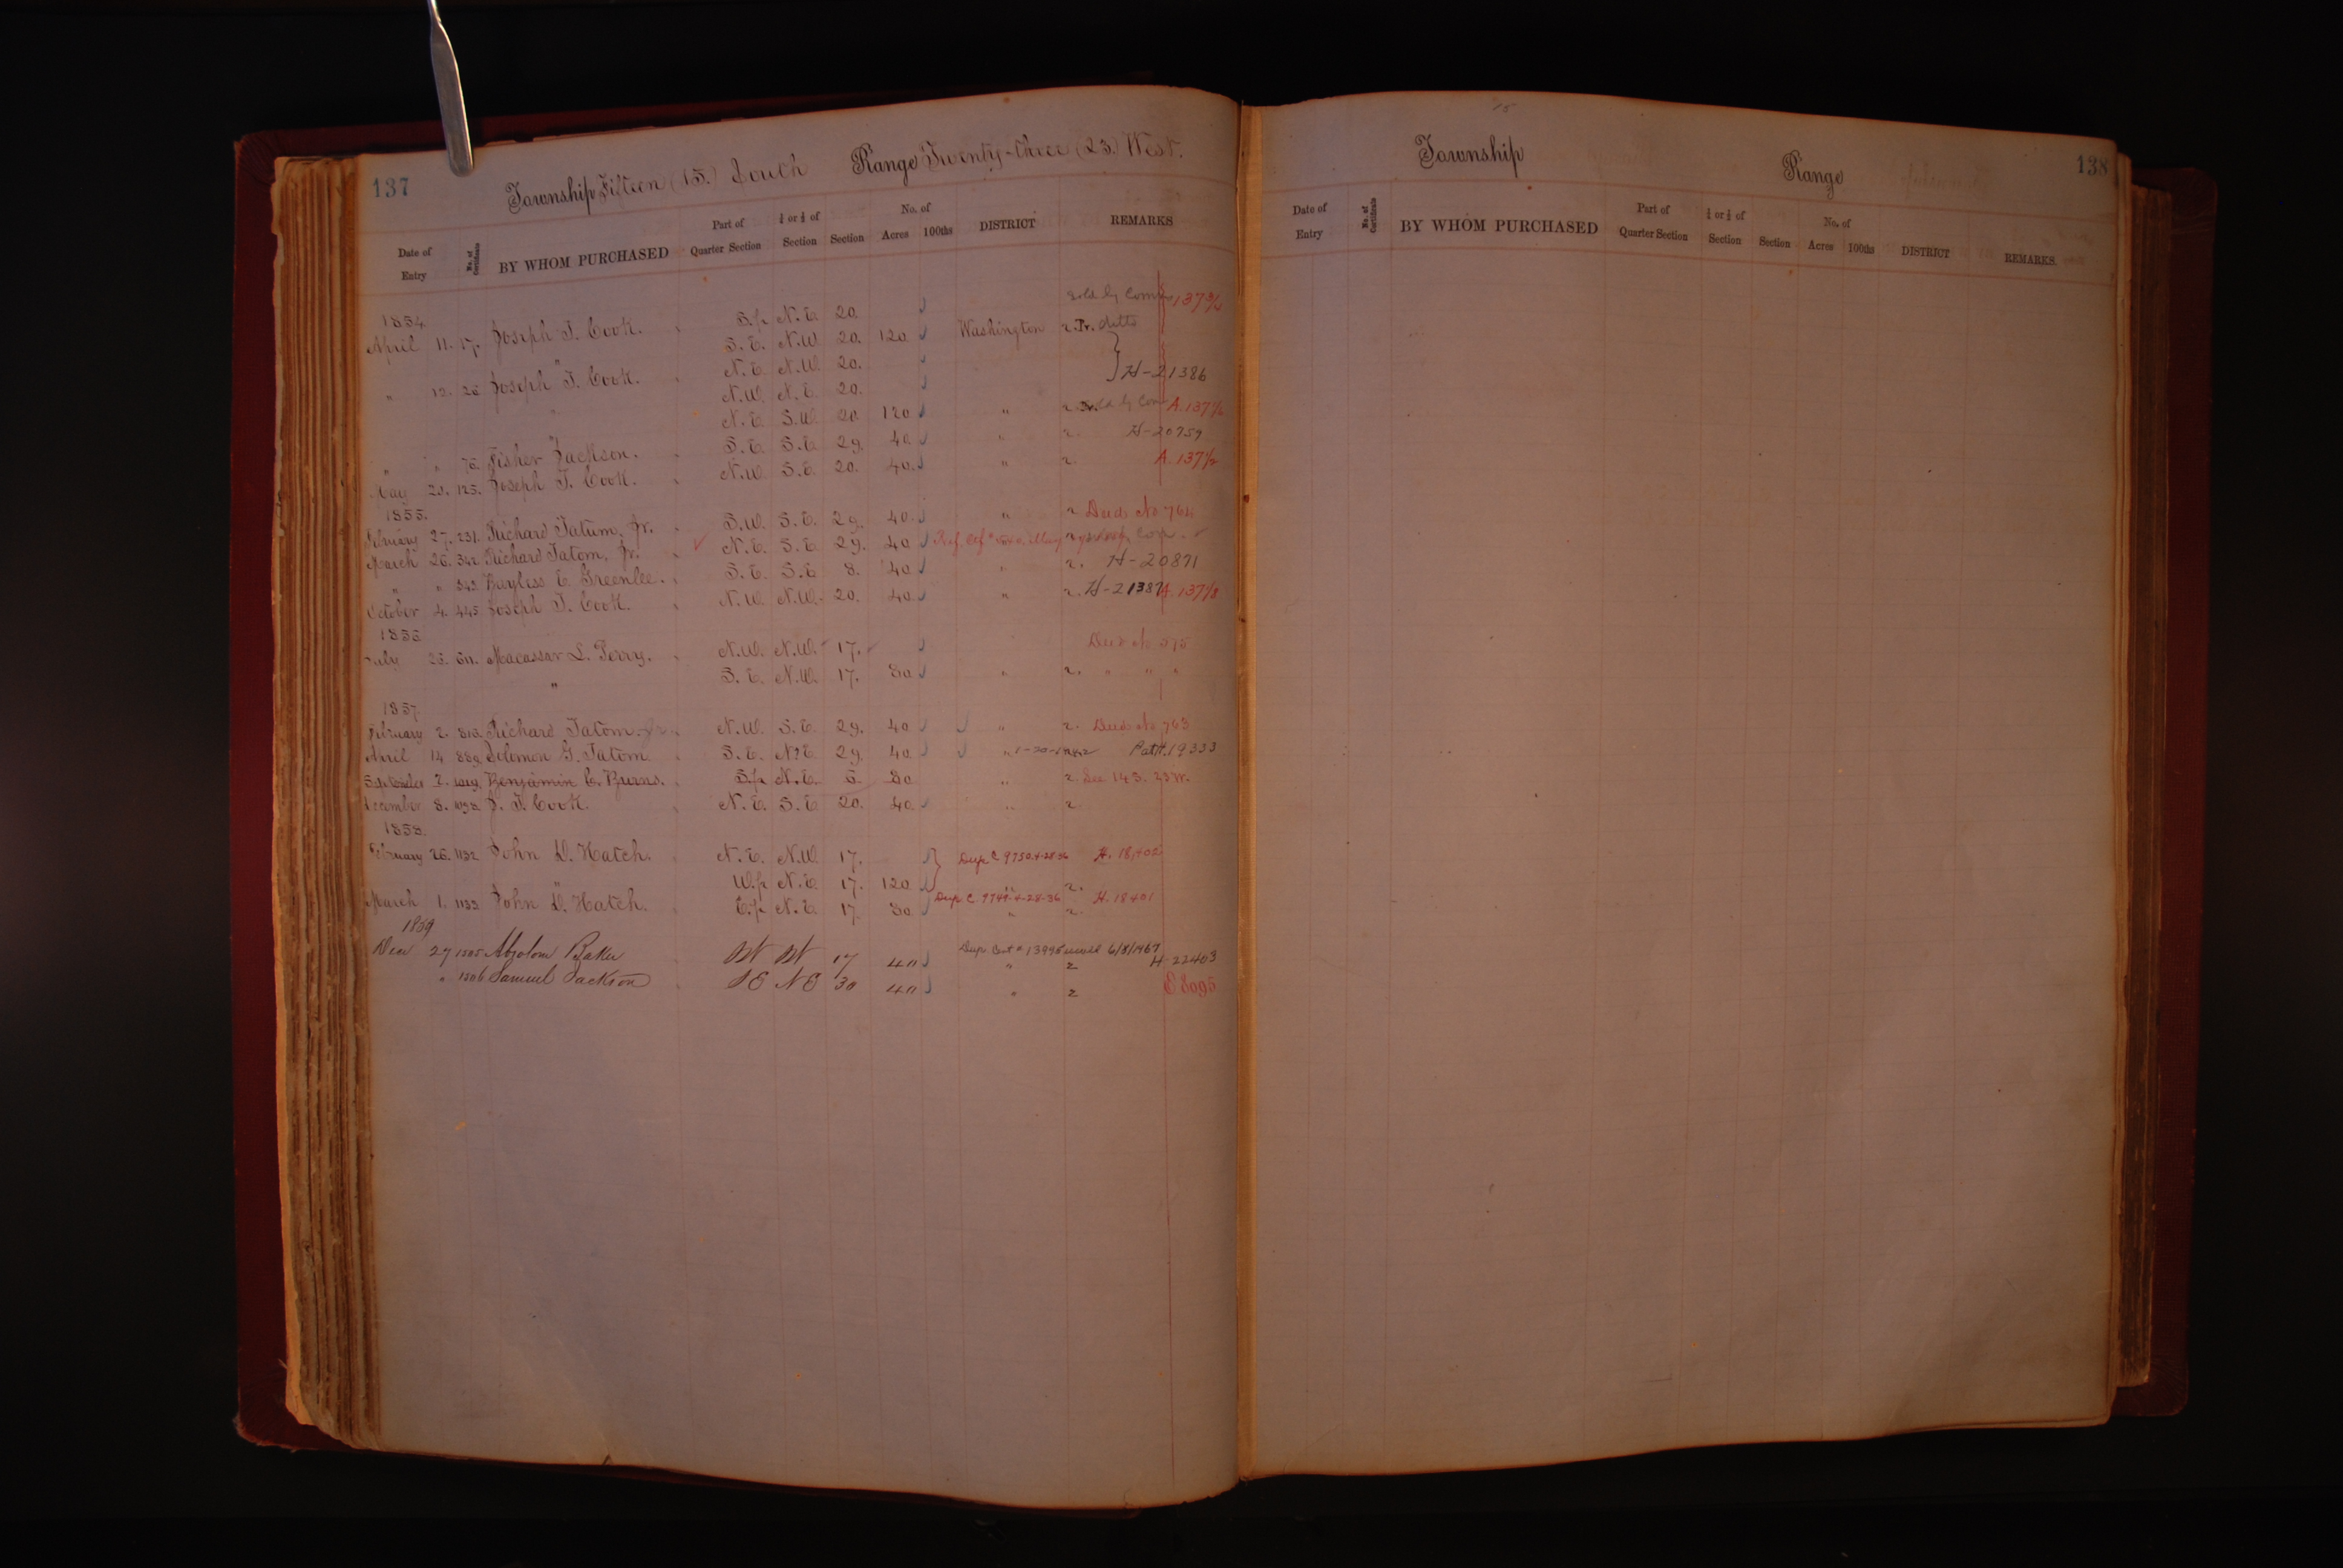 137
Township Fifteen (15.) South Range Twenty-three (23.) West.
Date of Entry No. of Certificate BY WHOM PURCHASED Part of Quarter Section ¼ or ½ of Section Section No. of Acres 100ths DISTRICT REMARKS
1854.
S.½ N.E. 20. Sold by
April 11. 17. Joseph T. Cook. S.E. N.W. 20. 120 Washington ditto
" N.E. N.W. 20.
" 12. 26 Joseph T. Cook. N.W. N.E. 20. H-21386
" N.E. S.W. 20. 120 " A.137½
" " 76. Fisher Jackson. S.E. S.E. 29. 40. " H-20759
May 20. 125. Joseph T. Cook. N.W. S.E. 20. 40. " A.137½
1855.
February 27. 231. Richard Tatum, Jr. S.W. S.E. 29. 40. " Deed No 764
March 26. 342. Richard Tatom, Jr. N.E. S.E. 29. 40
" " 343. Bayless E. Greenlee. S.E. S.E. 8. 40 " H-20871
October 4. 445 Joseph T. Cook. N.W. N.W. 20. 40. " H-21387 A.137⅛
1856
July 25. 611. Macassar L. Perry. N.W. N.W. 17. Deed No 575
" S.E. N.W. 17. 80 " " " "
1857.
February 2. 816. Richard Tatom. Jr. N.W. S.E. 29. 40 " Deed No 763
April 14 889. Solomon G. Tatom. S.E. N.E. 29. 40. " Pat H.19333
September 2. 1019. Benjamin C. Burns. S.½ N.E. 5. 80 " See 14S. 23W.
December 8. 1092. J. T. Cook. N.E. S.E. 20. 40. "
1858.
February 26. 1132 John D. Hatch. N.E. N.W. 17. Dup C 9750.4-28-36 H. 18402
" W.½ N.E. 17. 120 "
March 1. 1133 John D. Hatch. E.½ N.E. 17. 80 Dup C. 9749.4-28-36 " H. 18401
1859
Dec 27 1505 Absolom Baker 17 40 Dup Cert # 13995 6/8/1967 " H-22403
" 1506 Samuel Jackson SE NE 30 40 " E 8095
15
138
Township Range
Date of Entry No. of Certificate BY WHOM PURCHASED Part of Quarter Section ¼ or ½ of Section Section No. of Acres 100ths DISTRICT REMARKS